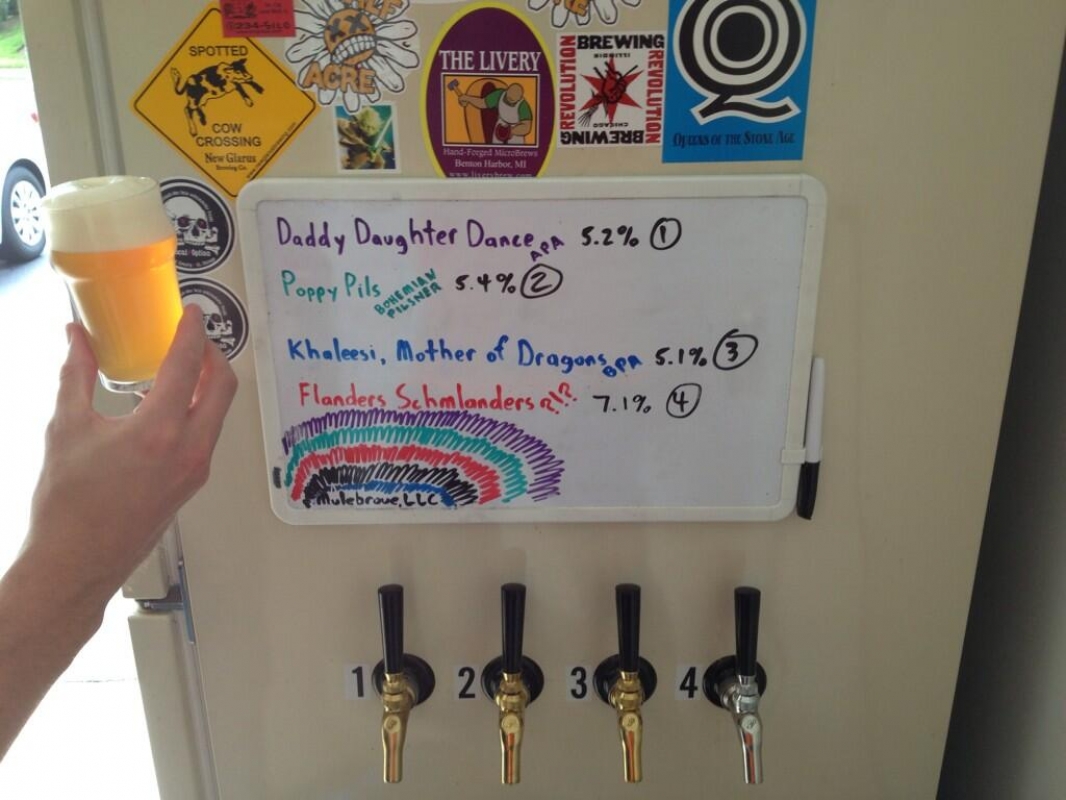 234-5ILE
HALF
ACRE
SPOTTED
COW
CROSSING
New Glarus
Brewing Co.
THE LIVERY
Hand-Forged MicroBrews
Benton Harbor, MI
www.liverybrew.com
BREWING
REVOLUTION
ILLINOIS
REVOLUTION
CHICAGO
BREWING
QUEENS OF THE STONE AGE
Daddy Daughter Dance APA 5.2% 1
Poppy Pils BOHEMIAN PILSNER 5.4% 2
Khaleesi, Mother of Dragons BPA 5.1% 3
Flanders Schmlanders?!? 7.1% 4
Mulebrove, LLC
1 2 3 4